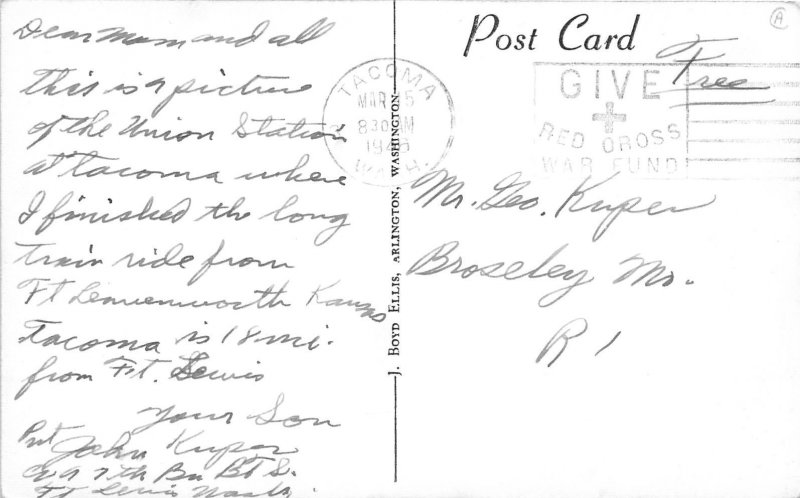 Dear Mom and all
this is a picture
of the Union Station
at Tacoma where
I finished the long
train ride from
Ft Leavenworth Kansas
Tacoma is 18 mi.
from Ft. Lewis
Your Son
Pvt John Kuper
7th Bn B.T.S.
Ft Lewis Wash.
J. BOYD ELLIS, ARLINGTON, WASHINGTON
Post Card
A
Free
TACOMA
MAR 5
8 30 M
194
WASH.
GIVE
RED CROSS
WAR FUND
Mr. Geo. Kuper
Broseley Mo.
R 1